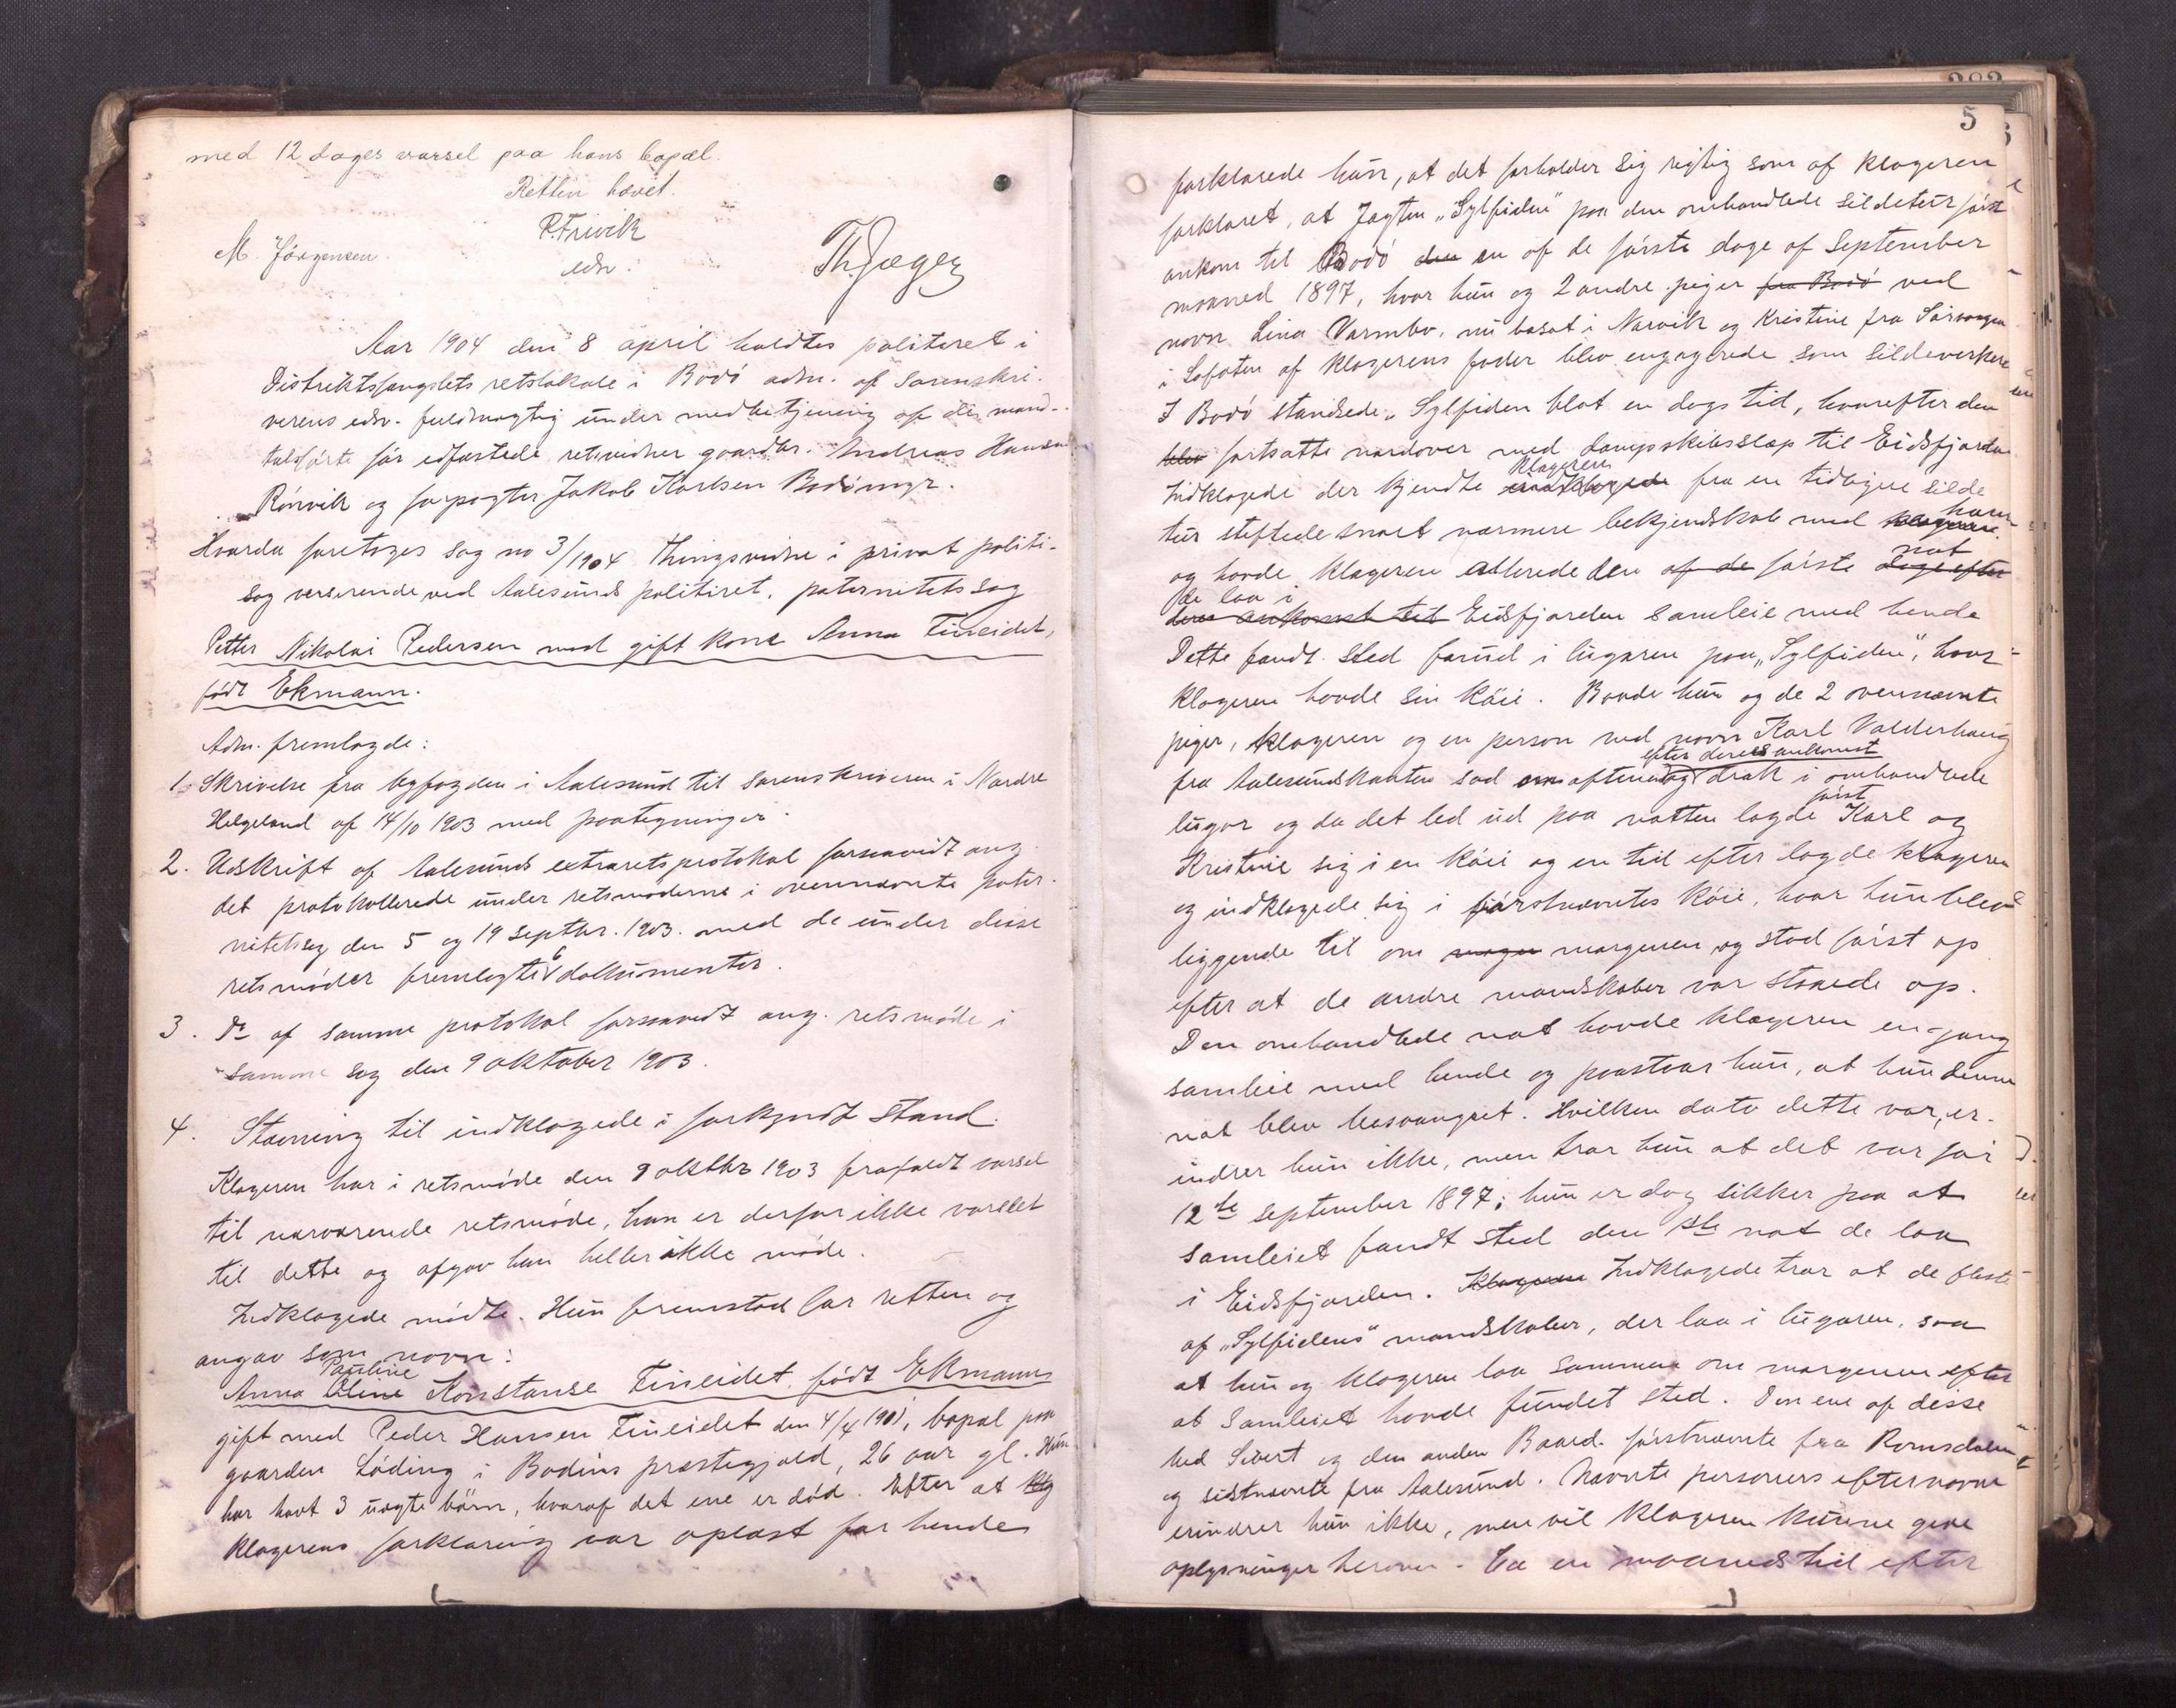 med 12 dages varsel paa hans bopæl.
Retten hævet.
P. Frivik
M. Jörgensen
edsv.
Th. Jæger
Aar 1904 den 8 april holdtes politiret i
Distriktsfængslets retslokale i Bodö adm. af sorenskri-
verens edsv. fuldmægtig under medbetjening af de mand-
talsförte för edfæstede retsvidner gaardbr. Andreas Hansen
Rönvik og forpagter Jakob Karlsen Bodömyr.
Hvorda foretoges sag no 3/1904 Thingsvidne i privat politi-
sag verserende ved Aalesunds politiret, paternitetssag
Petter Nikolai Pedersen mod gift kone Anna Fineidet,
født Ekmann.
Adm. fremlagde:
1. Skrivelse fra byfogden i Aalesund til sorenskriveren i Nordre
Helgeland af 14/10 1903 med paategninger.
2. Udskrift af Aalesunds extraretsprotokol forsaavidt ang.
det protokollerede under retsmöderne i ovennævnte pater-
nitetssag den 5 og 19 septbr. 1903. med de under disse
retsmöder fremlagte 6 dokumenter.
3. Do af samme protokol forsaavidt ang. retsmöde i
samme sag den 9 oktober 1903.
4. Stævning til indklagede i forkyndt stand.
Klageren har i retsmöde den 9 oktbr 1903 frafaldt varsel
til nærværende retsmöde, han er derfor ikke varslet
til dette og afgav han heller ikke möde.
Indklagede mödte. Hun fremstod for retten og
angav som navn:
Pauline
Anna Oline Konstanse Fineidet født Ekmann
gift med Peder Hansen Fineidet den 4/4 1901, bopæl paa
gaarden Löding i Bodins præstegjæld, 26 aar gl. Hun
har havt 3 uægte börn, hvoraf det ene er död. Efter at klg
klagerens forklaring var oplæst for hende
5
forklarede hun, at det forholder sig rigtig som af klageren
forklaret, at Jagten "Sylfiden" paa den omhandlede sildetur först
ankom til Bodö den en af de förste dage af September
maaned 1897, hvor hun og 2 andre piger fra Bodö ved
navn Lina Varmbo, nu bosat i Narvik og Kristine fra Sörvaagen
i Lofoten af klagerens fader blev engagerede som sildevirkere
I Bodö standsede "Sylfiden blot en dags tid, hvorefter den
blev fortsatte nordover med dampskibsslæp til Eidsfjorden
klageren
Indklagede der kjendte indklagede fra en tidligere silde
ham
tur stiftede snart nærmere bekjendskab med klageren.
nat
og havde klageren allerede den af de förste dage efter
de laa i
deres ankomst til Eidsfjorden samleie med hende
Dette fandt sted forud i lugaren paa "Sylfiden", hvor
klageren havde sin köie. Baade hun og de 2 ovennævnte
piger, klageren og en person ved navn Karl Valderhaug
efter deres ankomst
fra Aalesundskanten sad om aftenen og drak i omhandlede
först
lugar og da det led ud paa natten lagde Karl og
Kristine sig i en köie og en tid efter lagde klageren
og indklagede sig i förstnævntes köie, hvor hun blev
liggende til om morgen morgenen og stod först op
efter at de andre mandskaber var staaede op.
Den omhandlede nat havde klageren en gang
samleie med hende og paastaar hun, at hun denne
nat blev besvangret. Hvilken dato dette var, er-
indrer hun ikke, men tror hun at det var för
12te september 1897; hun er dog sikker paa at
samleiet fandt sted den 1ste nat de laa
i Eidsfjorden. Klageren Indklagede tror at de fleste
af "Sylfidens" mandskaber, der laa i lugaren, saa
at hun og klageren laa sammen om morgenen efter
at samleiet havde fundet sted. Den ene af disse
hed Sivert og den anden Baard. förstnævnte fra Romsdalen
og sistnævnte fra Aalesund. Nævnte personers efternavne
erindrer hun ikke, men vil klageren kunne give
oplysninger herom. Ca en maaneds tid efter